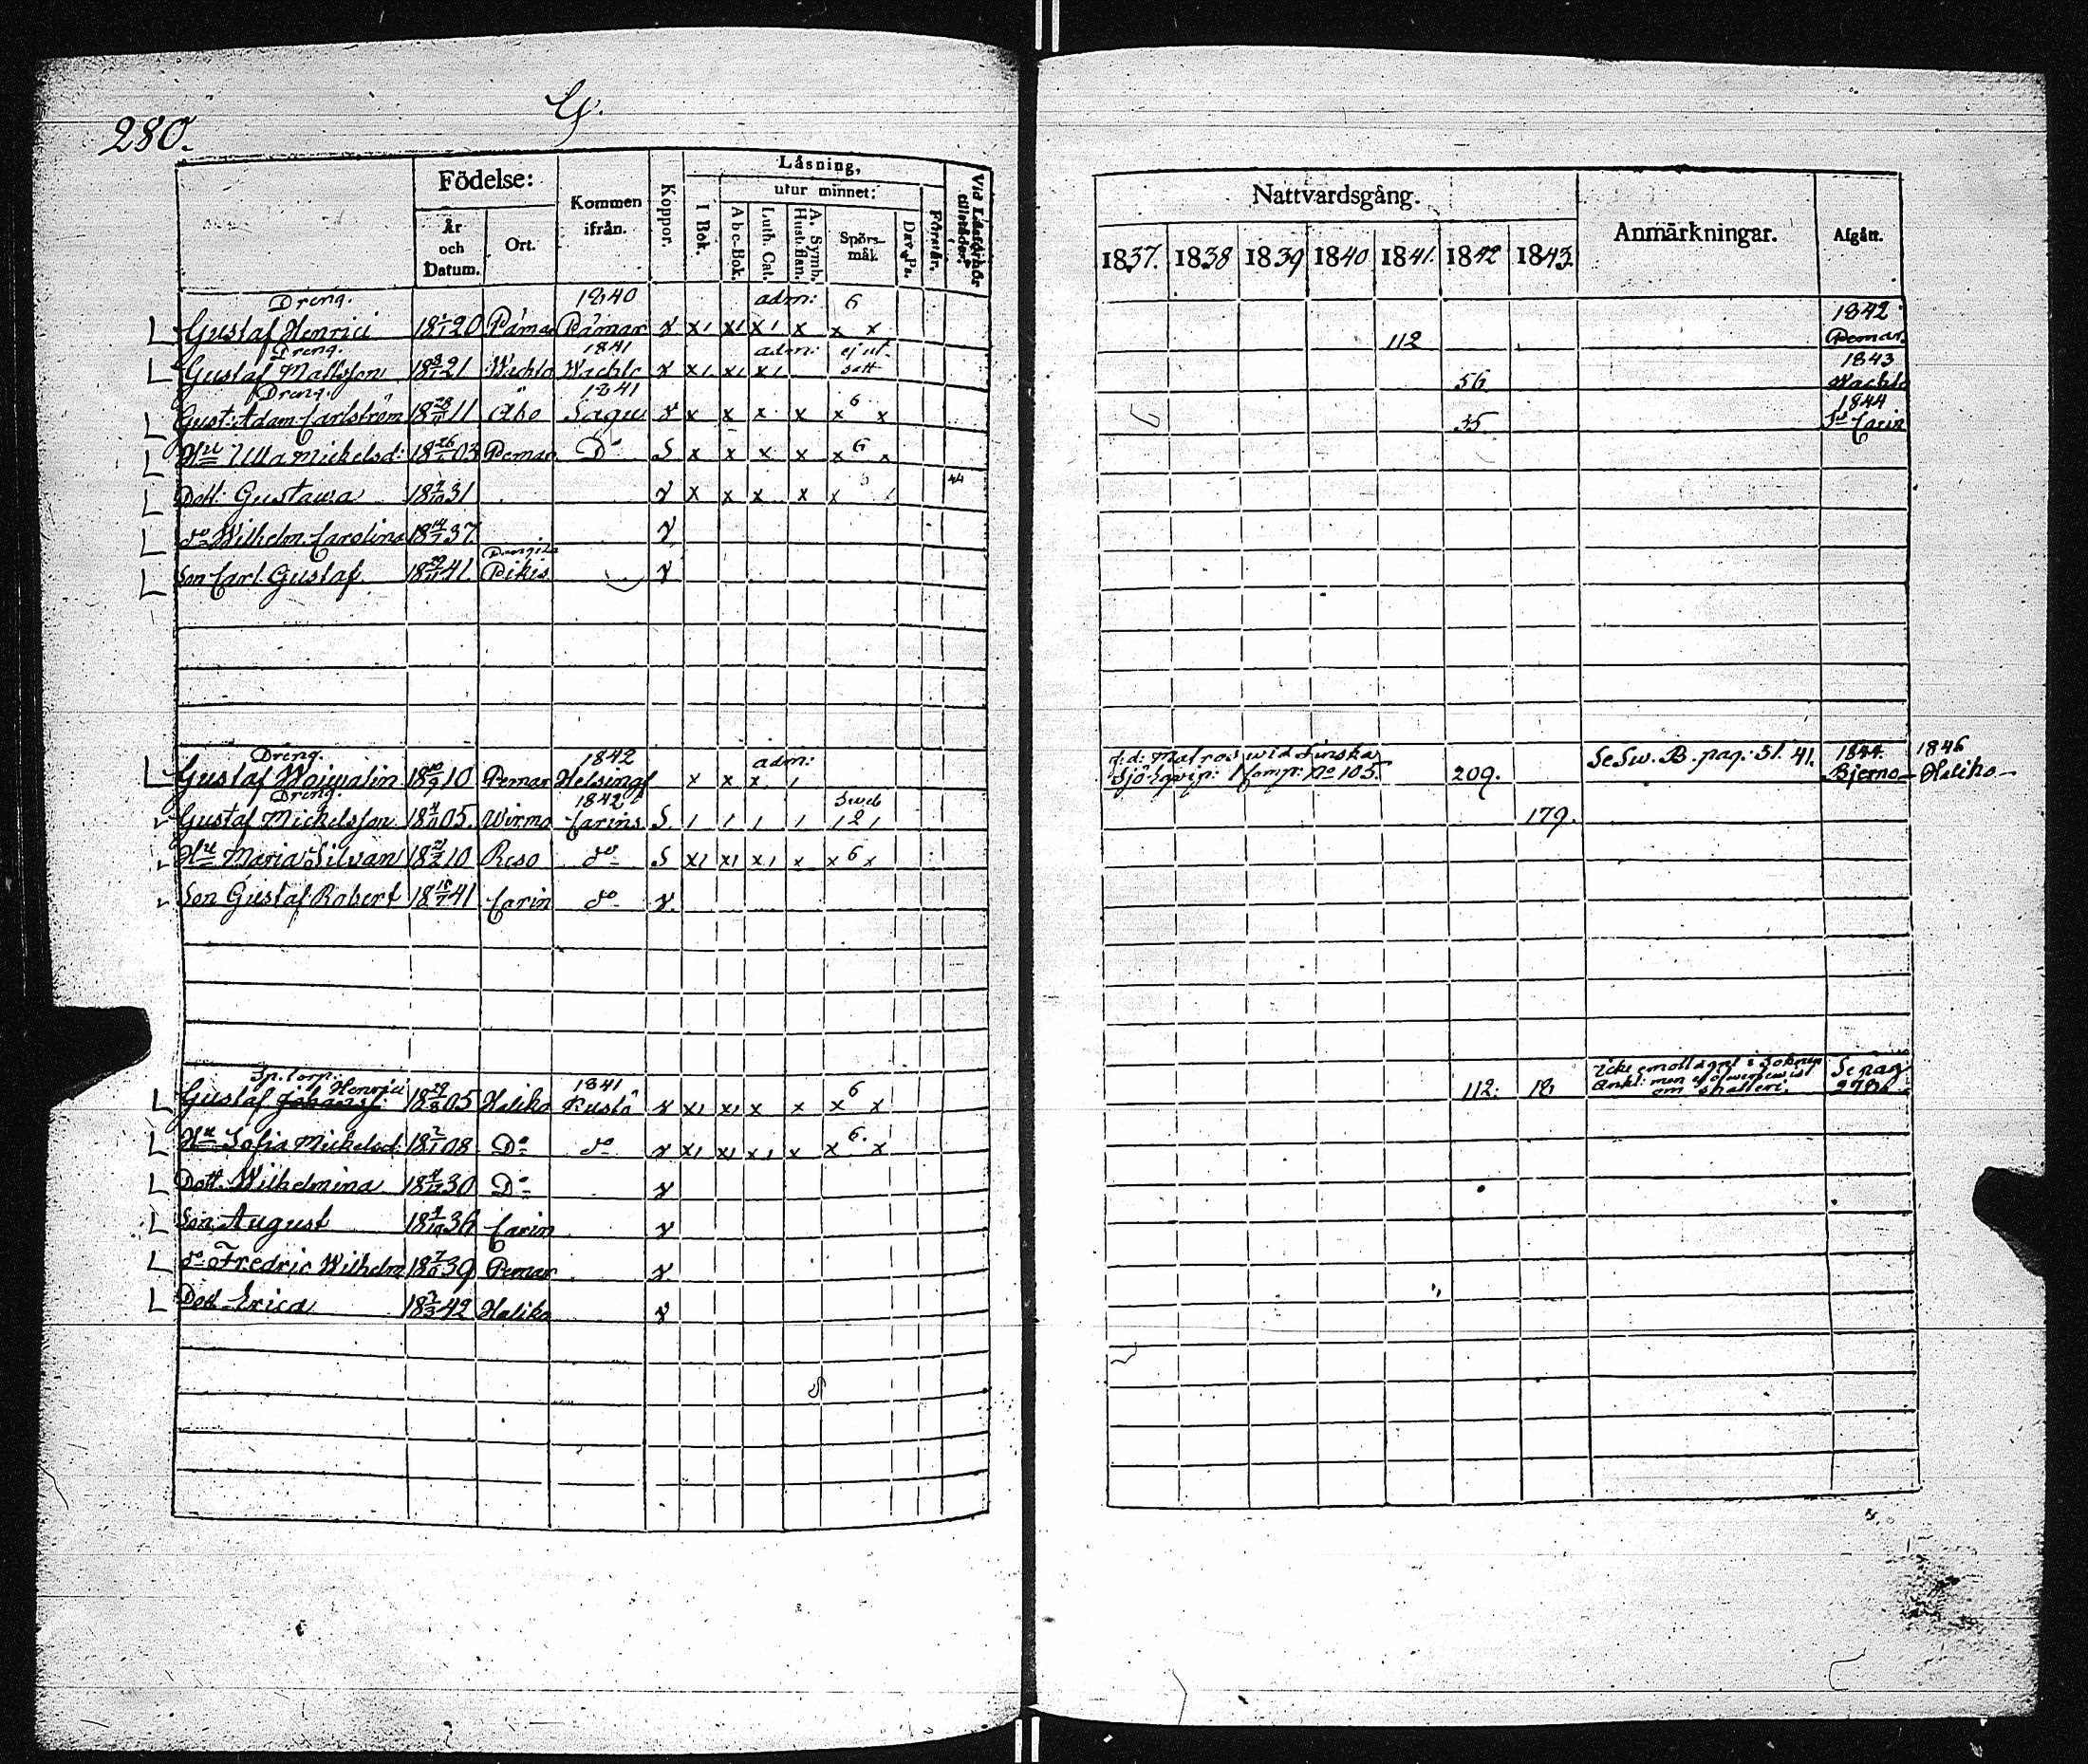 280.
G.
Födelse:
År och Datum.
Ort.
Kommen ifrån.
Koppor.
Läsning,
utur minnet:
I Bok.
Abc-Bok.
Luth. Cat.
A. Symb. Hust. flan.
Spörs-mål.
Dav. Ps.
Förstår.
Vid Läsförhör tillstädes.
Nattvardsgång.
1837. 1838 1839 1840 1841. 1842 1843.
Anmärkningar.
Afgått.
Dreng. 1840 adm: 6 1842
Gustaf Henrici 18 20 Pämar Pämar v x x x x x x 112 Pemar.
Dreng. 1841 adm: ej ut- 1843
Gustaf Mattsson 18 21 Wachto Wachto v x x x satt 56 Wachto
Dreng. 1841 6 1844
Gust: Adam Carlström 18 28/11 11 Åbo Sagu v x x x x x x 35 St Carin
Hu Ulla Mickelsd: 18 26 03 Pemar Do S x x x x x 6 x
Dott: Gustava 18 31 v x x x x x 44
do Wilhelm. Carolina 18 37 v
Son Carl Gustaf 18 41. Pikis v
Dreng. 1842 adm: d:d: Matros wid Finska 1844 1846
Gustaf 18 10 Pemar Helsingf x x x Sjö Eqvip: 1 Komp: No 105. 209. Se Sw. B. pag: 51. 41. Bjerno Haliko
Dreng. 1842 Swe
Gustaf Mickelsson 18 05. Wirmo Carins S. 2 179.
Hu Maria Silvan 18 10 Reso do S x x x x x 6 x
Son Gustaf Robert 18 41 Carin do v
Sp. torp: Henrici 1841 6
Gustaf Johanss: 18 29/8 05 Haliko Kustö v x x x x x x 112. 18 Icke emottaget i Soknen Se pag 278.
om skatteri.
Hu Sofia Mickelsd: 18 2/1 08 Do do v x x x x x 6. x
Dott. Wilhelmina 18 30 Do v
Son August 18 36 Carin v
do Fredric Wilhelm 18 39 Pemar v
Dott Erica 18 42 Haliko v